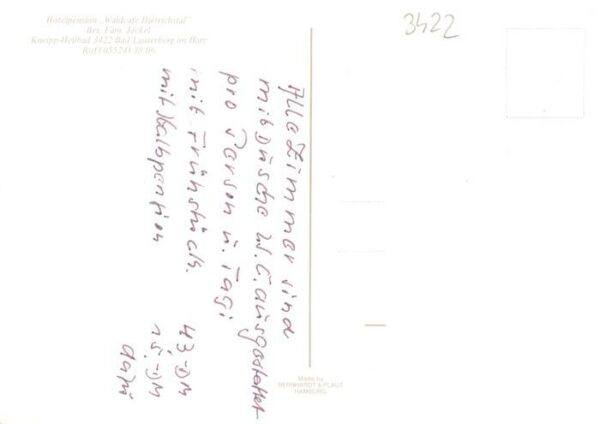 Hotelpension „Waldcafe Dietrichstal"
Bes. Fam. Jäckel
Kneipp-Heilbad 3422 Bad Lauterberg im Harz
Ruf (05524) 38 06
3422
Alle Zimmer sind
mit Dusche W.C. ausgestattet
pro Person u. Tag:
mit Frühstück. 43,-DM
mit Halbpension 15,-DM
dazu
Made by
BERNHARDT & PLAUT
HAMBURG